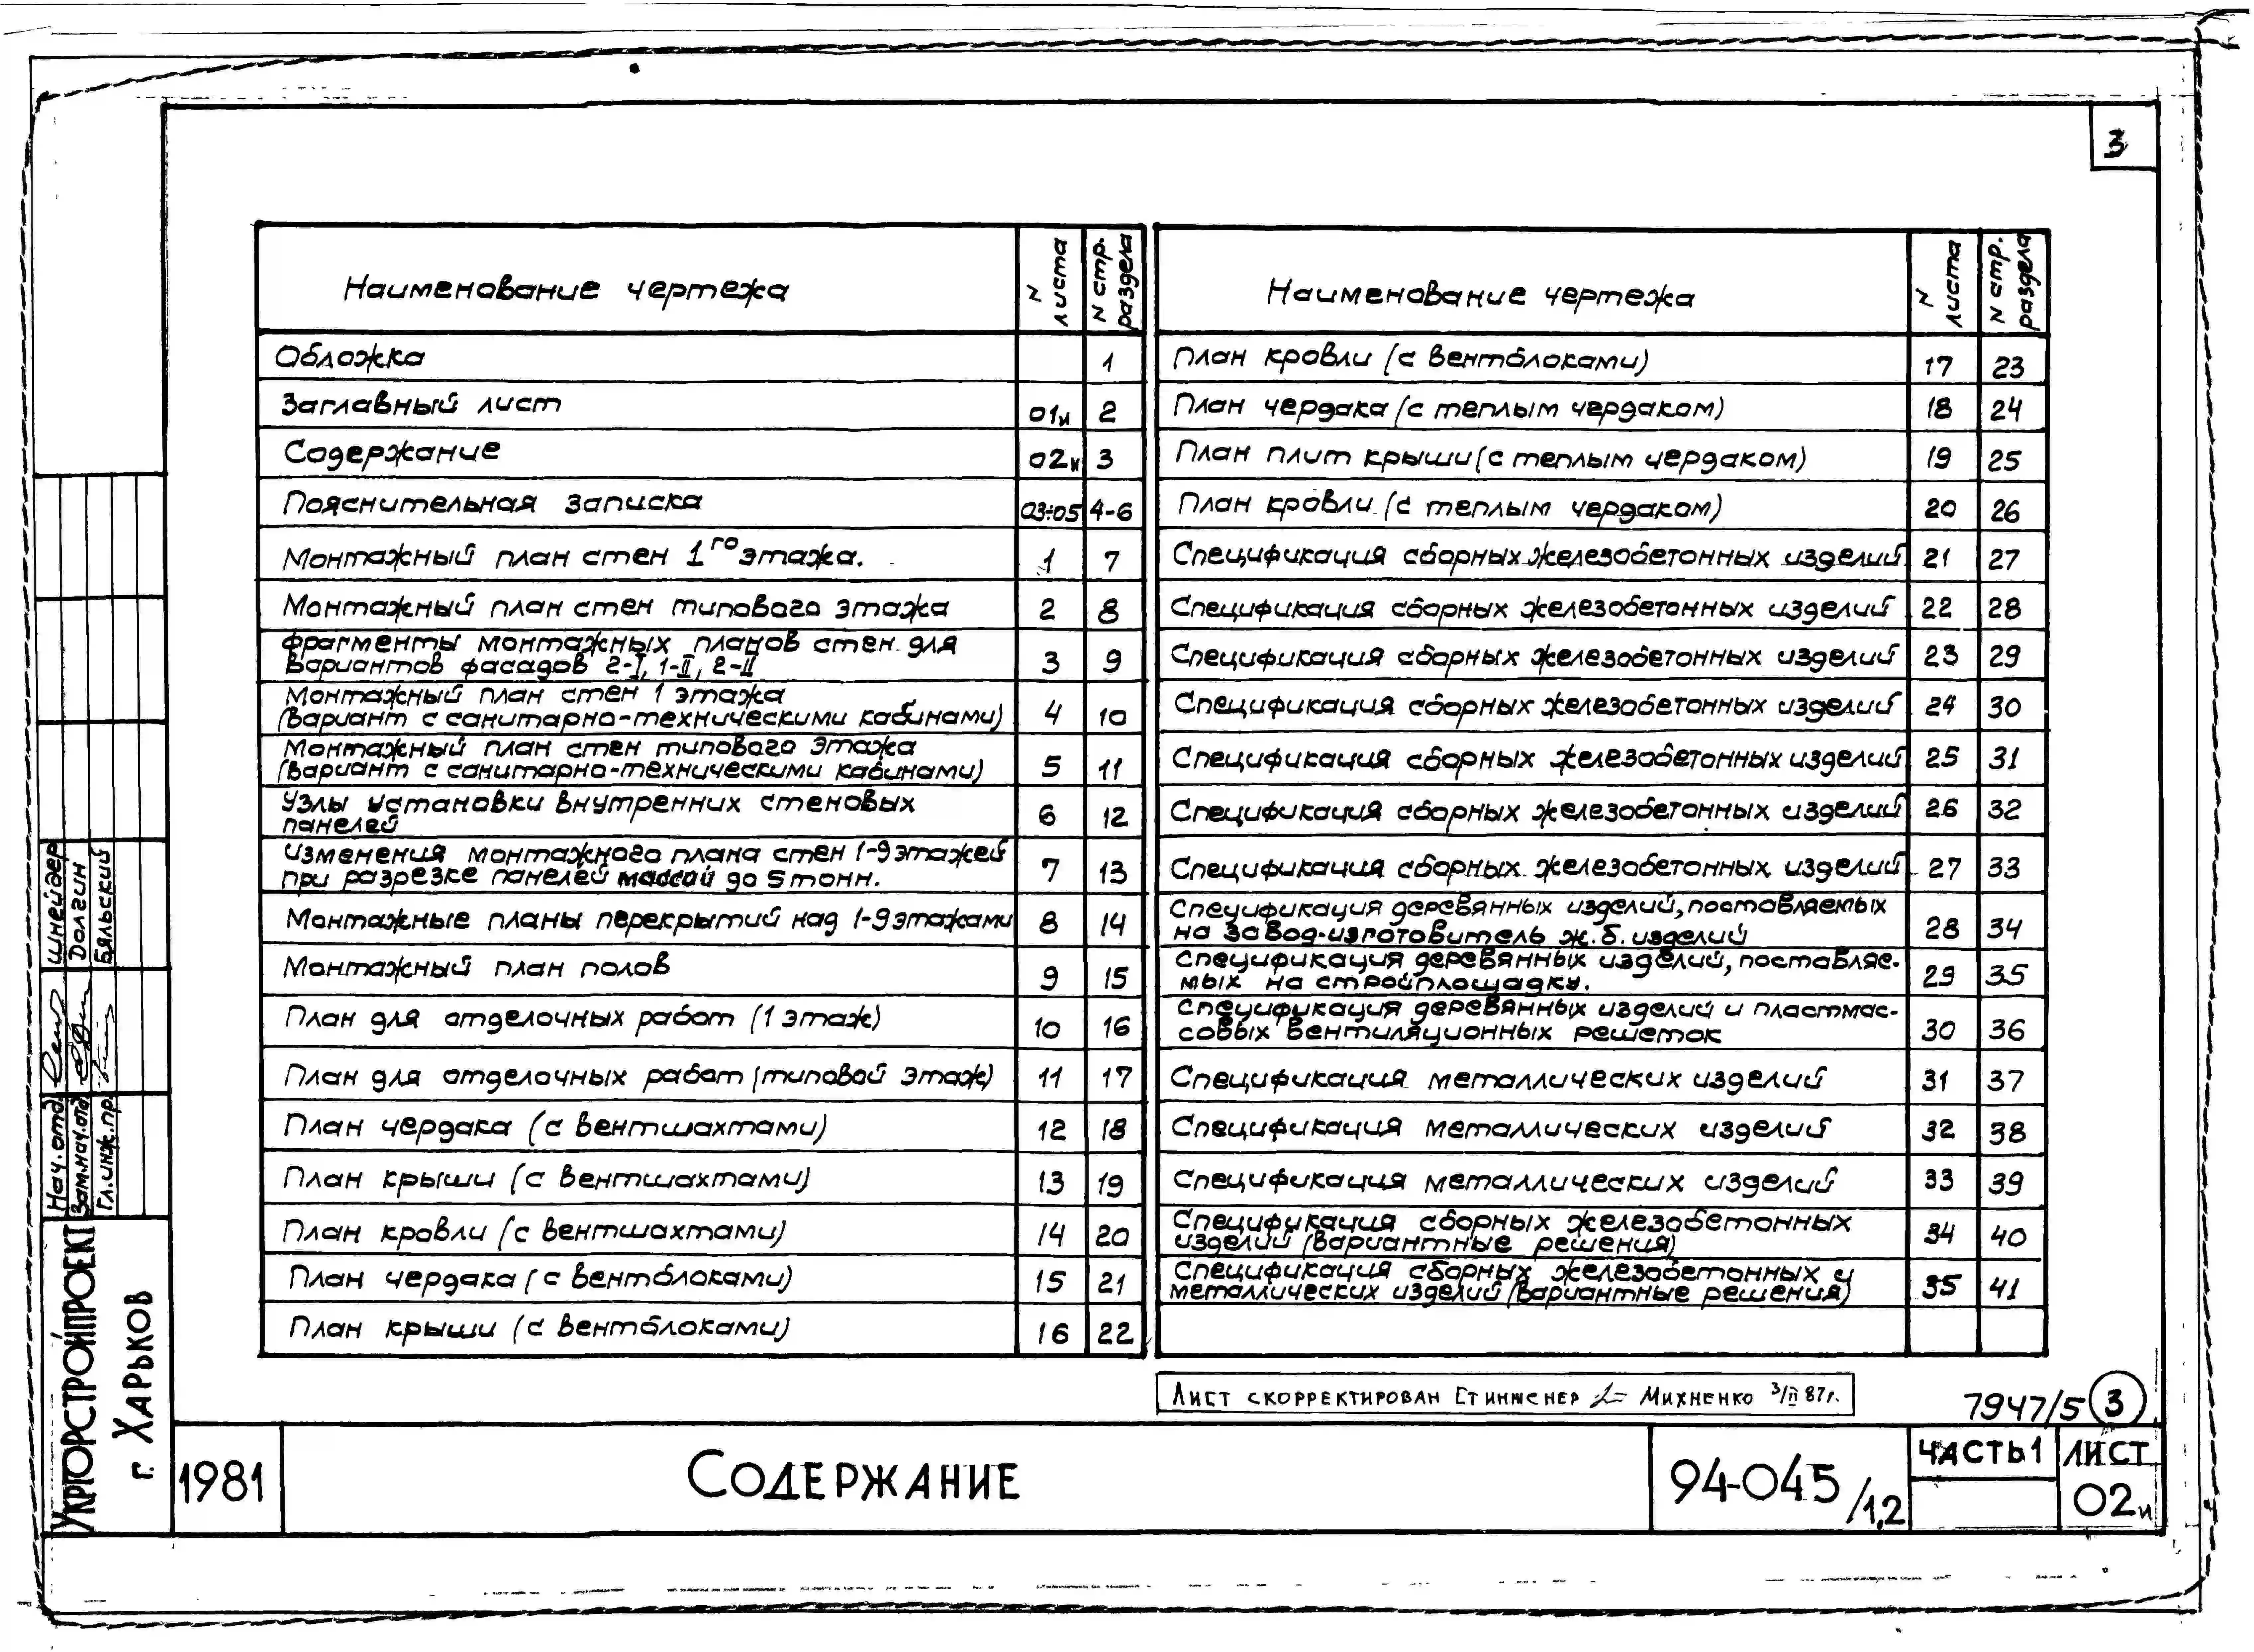 3
Наименование чертежа
N листа
N стр. раздела
Обложка 1
Заглавный лист 01и 2
Содержание 02и 3
Пояснительная записка 03÷05 4-6
Монтажный план стен 1го этажа. 1 7
Монтажный план стен типового этажа 2 8
Фрагменты монтажных планов стен для
вариантов фасадов 2-I, 1-II, 2-II 3 9
Монтажный план стен 1 этажа
(вариант с санитарно-техническими кабинами) 4 10
Монтажный план стен типового этажа
(вариант с санитарно-техническими кабинами) 5 11
Узлы установки внутренних стеновых
панелей 6 12
Изменения монтажного плана стен 1-9 этажей
при разрезке панелей массой до 5 тонн. 7 13
Монтажные планы перекрытий над 1-9 этажами 8 14
Монтажный план полов 9 15
План для отделочных работ (1 этаж) 10 16
План для отделочных работ (типовой этаж) 11 17
План чердака (с вентшахтами) 12 18
План крыши (с вентшахтами) 13 19
План кровли (с вентшахтами) 14 20
План чердака (с вентблоками) 15 21
План крыши (с вентблоками) 16 22
Наименование чертежа
N листа
N стр. раздела
План кровли (с вентблоками) 17 23
План чердака (с теплым чердаком) 18 24
План плит крыши (с теплым чердаком) 19 25
План кровли (с теплым чердаком) 20 26
Спецификация сборных железобетонных изделий 21 27
Спецификация сборных железобетонных изделий 22 28
Спецификация сборных железобетонных изделий 23 29
Спецификация сборных железобетонных изделий 24 30
Спецификация сборных железобетонных изделий 25 31
Спецификация сборных железобетонных изделий 26 32
Спецификация сборных железобетонных изделий 27 33
Спецификация деревянных изделий, поставляемых
на завод-изготовитель ж.б. изделий 28 34
Спецификация деревянных изделий, поставляе-
мых на стройплощадку. 29 35
Спецификация деревянных изделий и пластмас-
совых вентиляционных решеток 30 36
Спецификация металлических изделий 31 37
Спецификация металлических изделий 32 38
Спецификация металлических изделий 33 39
Спецификация сборных железобетонных
изделий (вариантные решения) 34 40
Спецификация сборных железобетонных и
металлических изделий (вариантные решения) 35 41
Лист скорректирован Ст инженер Михненко 3/II 87г.
7947/5 3
Нач. отд. Шнейдер
Зам. нач. отд. Долгин
Гл. инж. пр. Бяльский
Укргорстройпроект
г. Харьков
1981
Содержание
94-045/1,2
Часть 1
Лист
02и